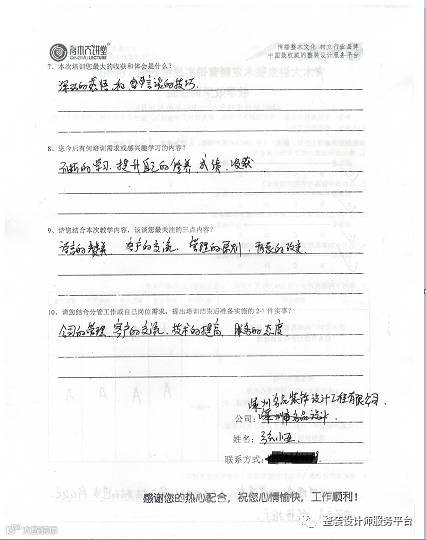 育木大讲堂
LECTURE
传播整木文化 树立行业品牌
中国最权威的整装设计服务平台
7、本次培训您最大的收获和体会是什么?
深深的感悟和 言谈的技巧.
8、您今后有何培训需求或感兴趣学习的内容?
不断的学习.提升自己的修养 成绩.收获
9、请您结合本次教学内容,谈谈您最关注的三点内容?
语言的赞美 客户的交流. 管理的原则. 形象的改变.
10、请您结合分管工作或自己岗位需求,提出培训结束后准备实施的2-3件实事?
公司的管理 客户的交流. 技术的提高 服务的态度.
名品装饰设计工程有限公司.
公司: 州市名品设计.
姓名:
联系方式:
感谢您的热心配合,祝您心情愉快,工作顺利!
整装设计师服务平台